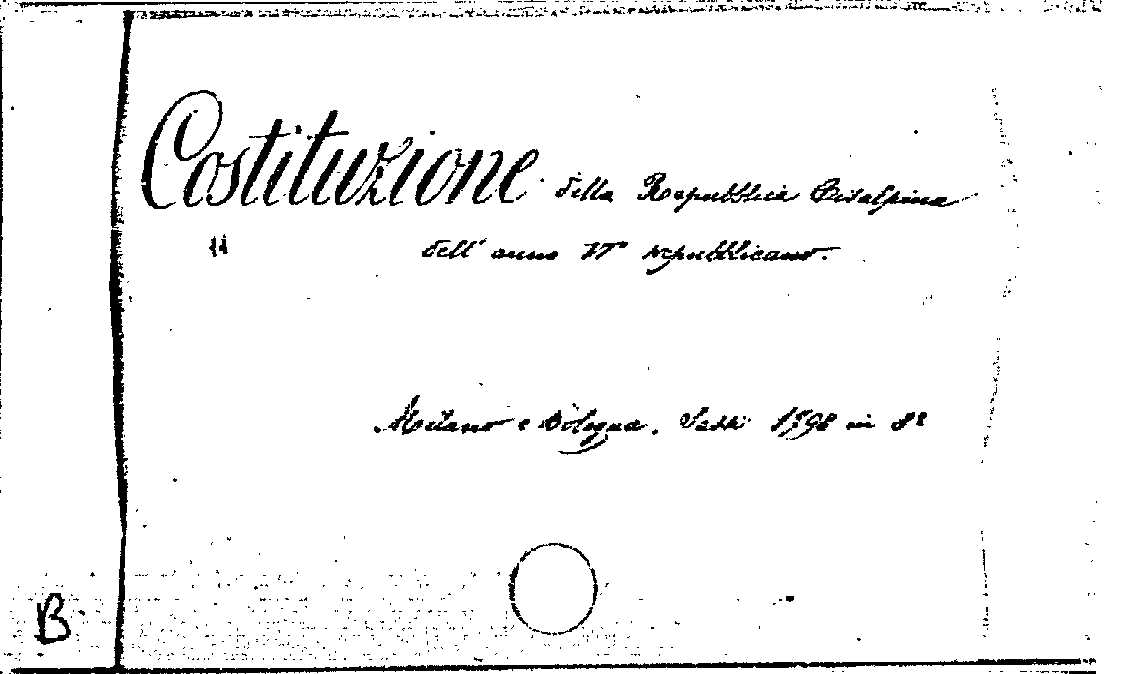 Costituzione della Repubblica Cisalpina
11 dell' anno VI° repubblicano.
Milano e Bologna. Sassi 1798 in 8°
B